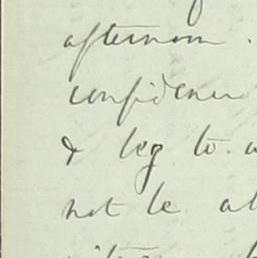 afternoon.
confidence
& beg to a
not be al